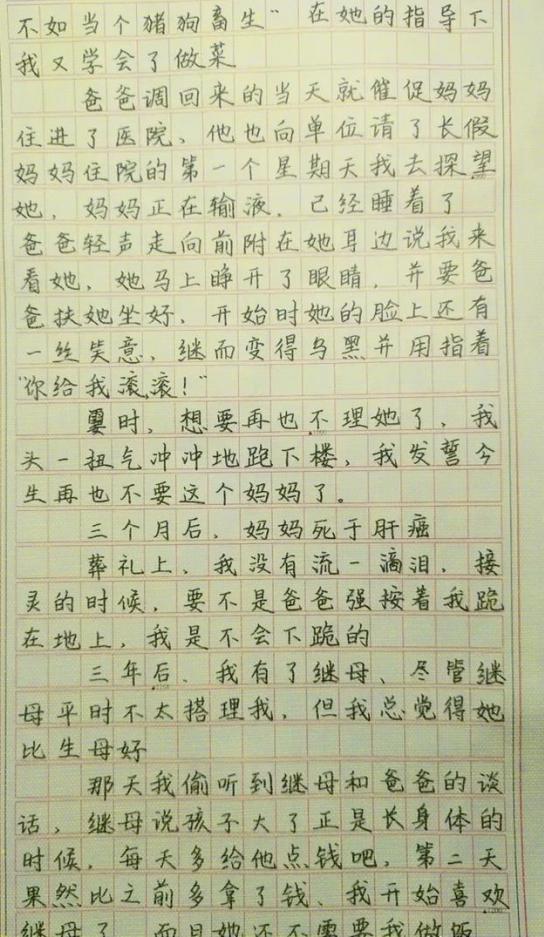 不如当个猪狗畜生” 在她的指导下
我又学会了做菜
爸爸调回来的当天就催促妈妈
住进了医院、他也向单位请了长假
妈妈住院的第一个星期天我去探望
她，妈妈正在输液，已经睡着了
爸爸轻声走向前附在她耳边说我来
看她，她马上睁开了眼睛，并要爸
爸扶她坐好，开始时她的脸上还有
一丝笑意，继而变得乌黑并用指着
“你给我滚滚！”
霎时，想要再也不理她了，我
头一扭气冲冲地跑下楼，我发誓今
生再也不要这个妈妈了。
三个月后，妈妈死于肝癌
葬礼上，我没有流一滴泪，接
灵的时候，要不是爸爸强按着我跪
在地上，我是不会下跪的
三年后、我有了继母、尽管继
母平时不太搭理我，但我总觉得她
比生母好
那天我偷听到继母和爸爸的谈
话，继母说孩子大了正是长身体的
时候，每天多给他点钱吧，第二天
果然比之前多拿了钱、我开始喜欢
继母了 而且她还不需要我做饭